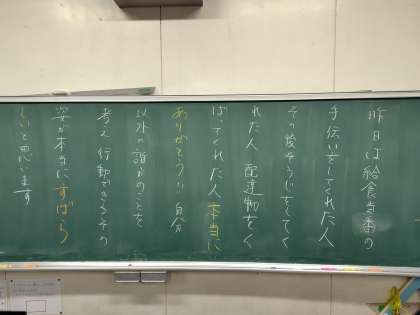 昨日は給食当番の
手伝いをしてくれた人
その後そうじをしてく
れた人 配達物をく
ばってくれた人 本当に
ありがとう!! 自分
以外の誰かのことを
考え 行動できるその
姿が本当にすばら
しいと思います